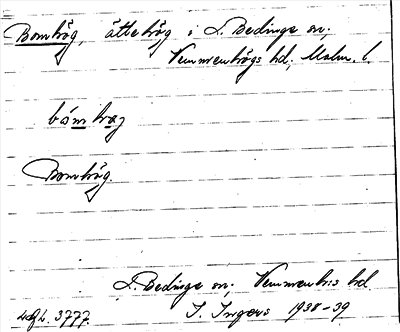 Bomhög, ättehög i L. Bedinge sn;
Vemmenhögs hd; Malm. l.
bómhøg
Bomhög.
L. Bedinge sn; Vemmenh:s hd.
I. Ingers 1938-39
3777.